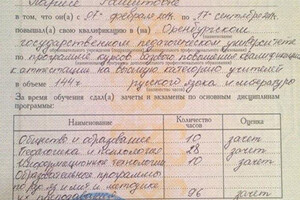 в том, что он(а) с 07 февраля по 17 сентября
повышал(а) свою квалификацию в (на) Оренбургском
государственном педагогическом университете
по программе курсов базового повышения квалификации
к аттестации на высшую категорию учителей
в объеме 144 ч русского языка и литературы
За время обучения сдал(а) зачеты и экзамены по основным дисциплинам
программы:
Наименование Количество часов Оценка
Общество и образование 10 зачет
Педагогика и психология 28 зачет
Информационные технологии 10 зачет
Образовательные программы
по рус. яз. и лит. и методика
их преподавания 96 зачет